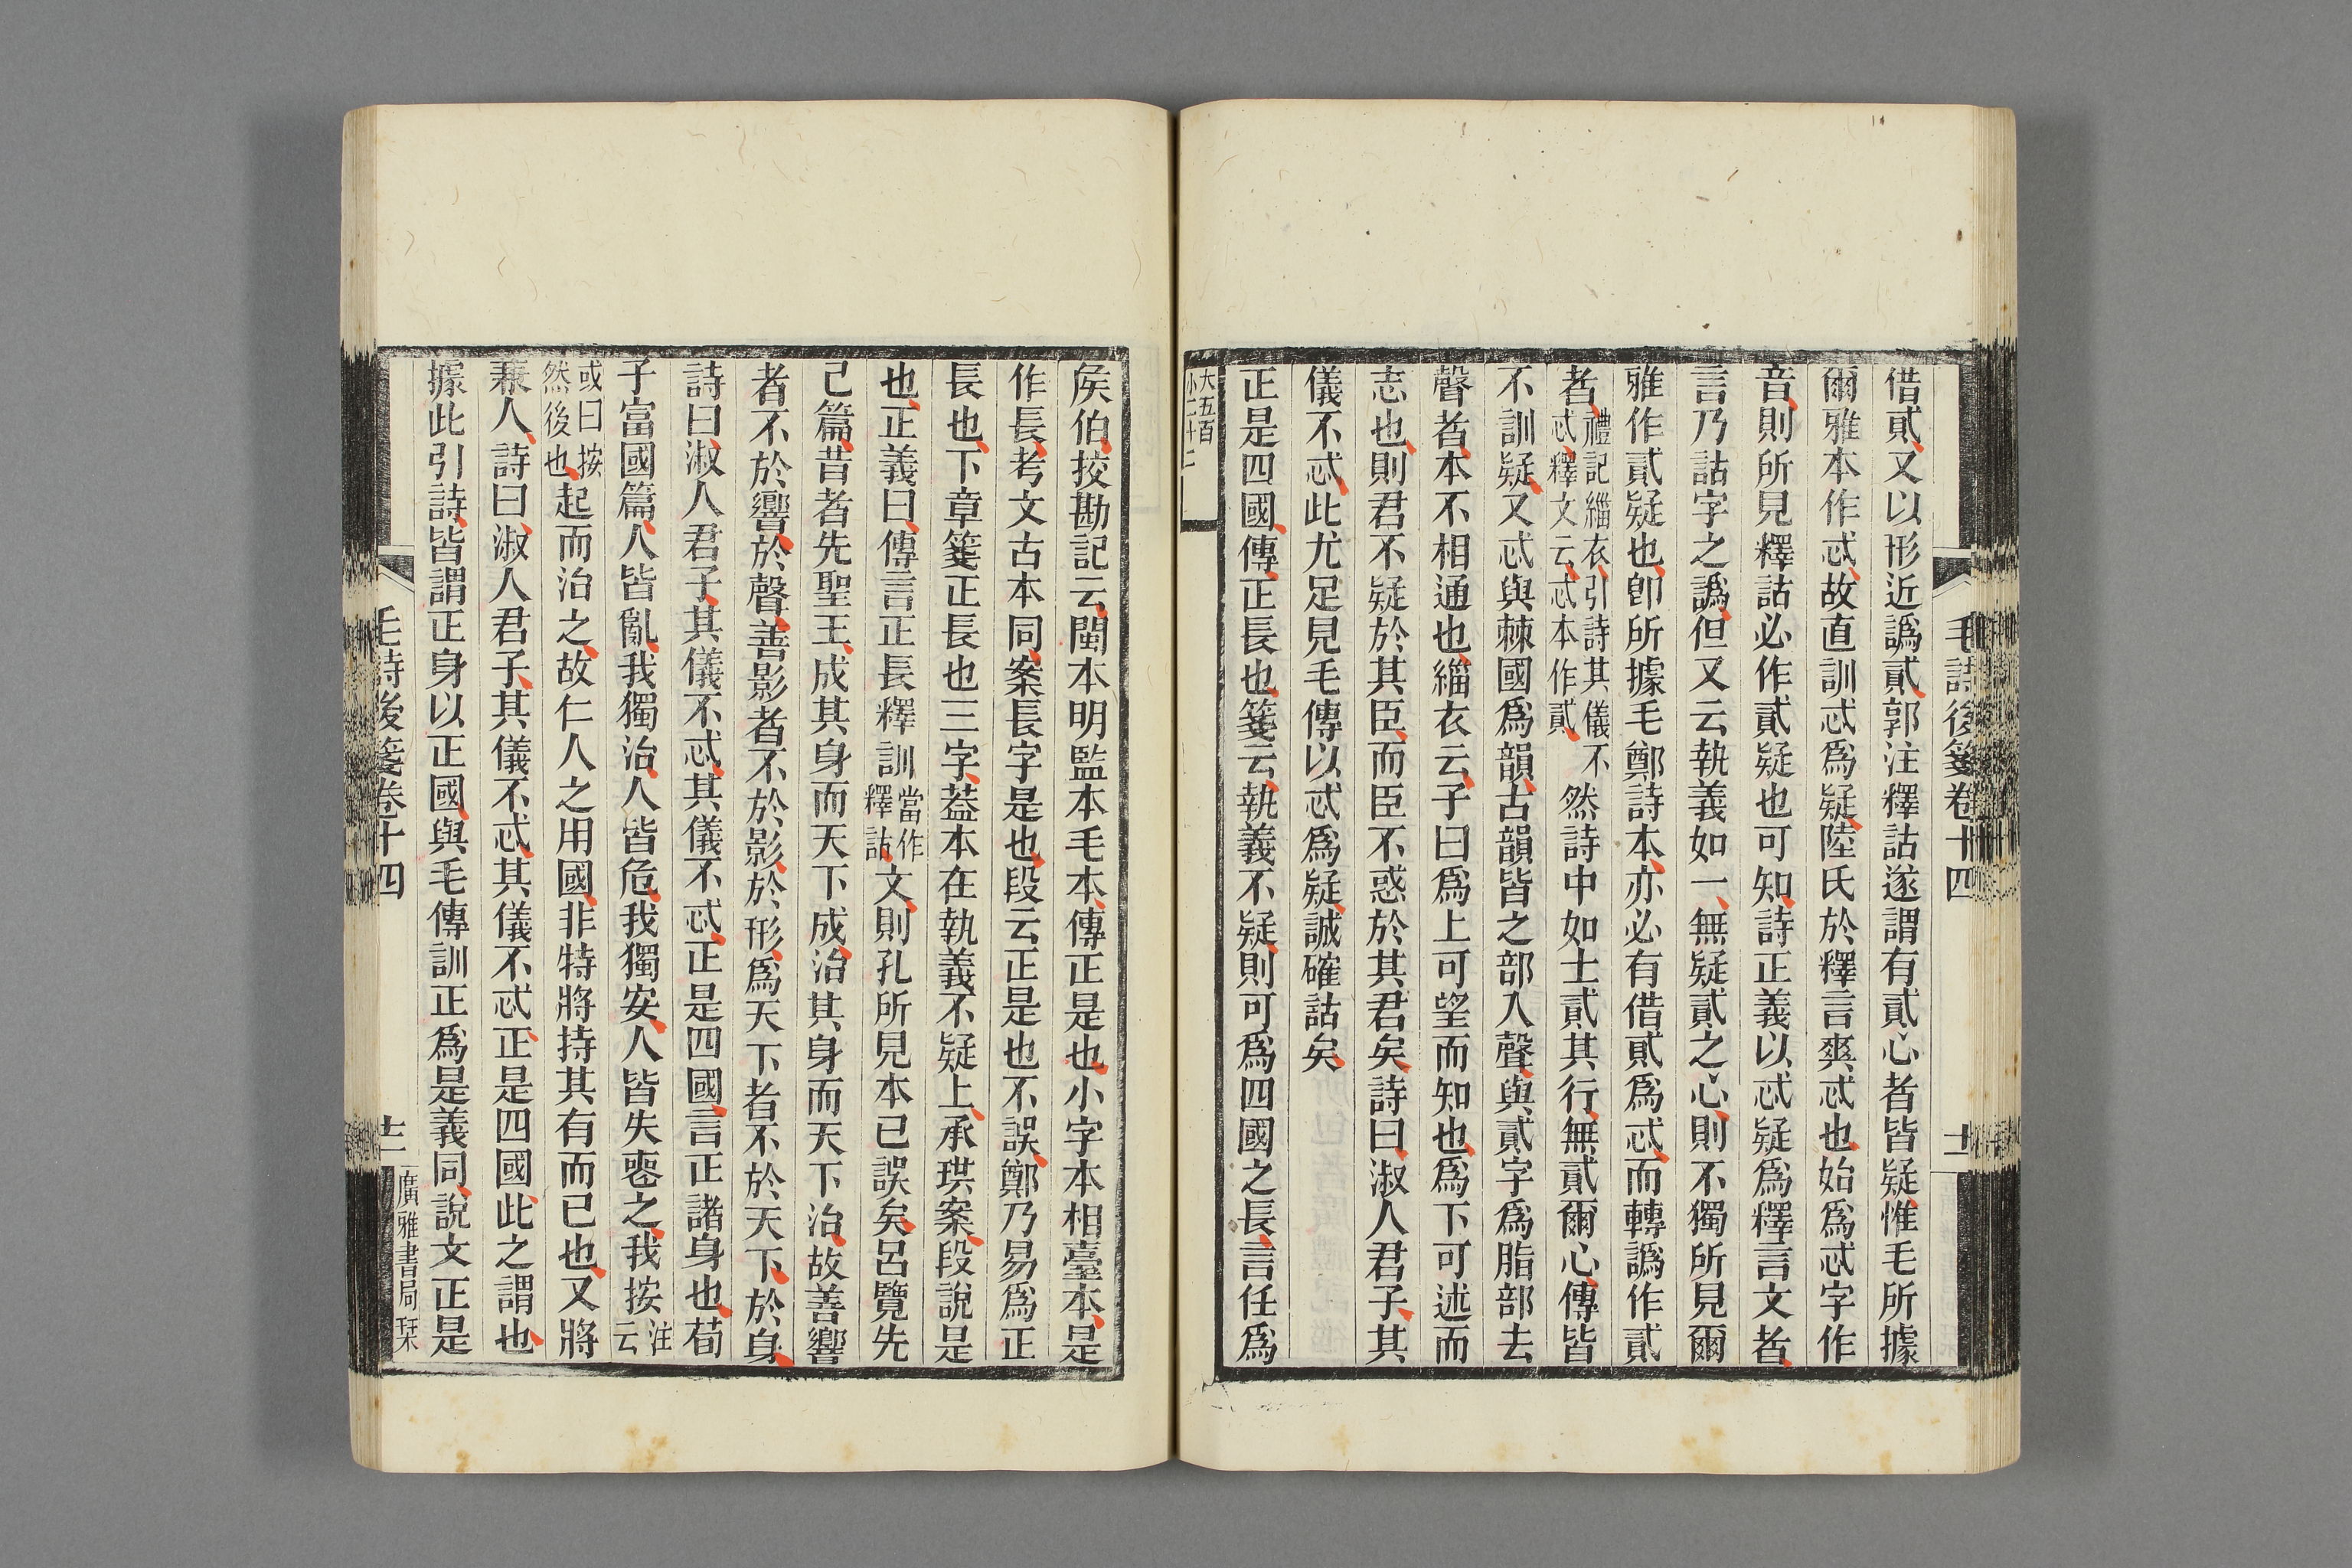 毛詩後箋卷十四
十一
借貳又以形近譌貳郭注釋詁遂謂有貳心者皆疑惟毛所據
爾雅本作忒故直訓忒爲疑陸氏於釋言爽忒也始爲忒字作
音則所見釋詁必作貳疑也可知詩正義以忒疑爲釋言文者
言乃詁字之譌但又云執義如一無疑貳之心則不獨所見爾
雅作貳疑也卽所據毛鄭詩本亦必有借貳爲忒而轉譌作貳
者禮記緇衣引詩其儀不
忒釋文云忒本作貳
然詩中如士貳其行無貳爾心傳皆
不訓疑又忒與棘國爲韻古韻皆之部入聲與貳字爲脂部去
聲者本不相通也緇衣云子曰爲上可望而知也爲下可述而
志也則君不疑於其臣而臣不惑於其君矣詩曰淑人君子其
儀不忒此尤足見毛傳以忒爲疑誠確詁矣
正是四國傳正長也箋云執義不疑則可爲四國之長言任爲
大五百
小二十二
矦伯挍勘記云閩本明監本毛本傳正是也小字本相臺本是
作長考文古本同案長字是也段云正是也不誤鄭乃易爲正
長也下章箋正長也三字葢本在執義不疑上承珙案段說是
也正義曰傳言正長釋訓當作
釋詁
文則孔所見本已誤矣呂覽先
己篇昔者先聖王成其身而天下成治其身而天下治故善響
者不於響於聲善影者不於影於形爲天下者不於天下於身
詩曰淑人君子其儀不忒其儀不忒正是四國言正諸身也荀
子富國篇人皆亂我獨治人皆危我獨安人皆失喪之我按注
云
或曰按
然後也
起而治之故仁人之用國非特將持其有而已也又將
兼人詩曰淑人君子其儀不忒其儀不忒正是四國此之謂也
據此引詩皆謂正身以正國與毛傳訓正爲是義同說文正是
毛詩後箋卷十四
十二
廣雅書局栞